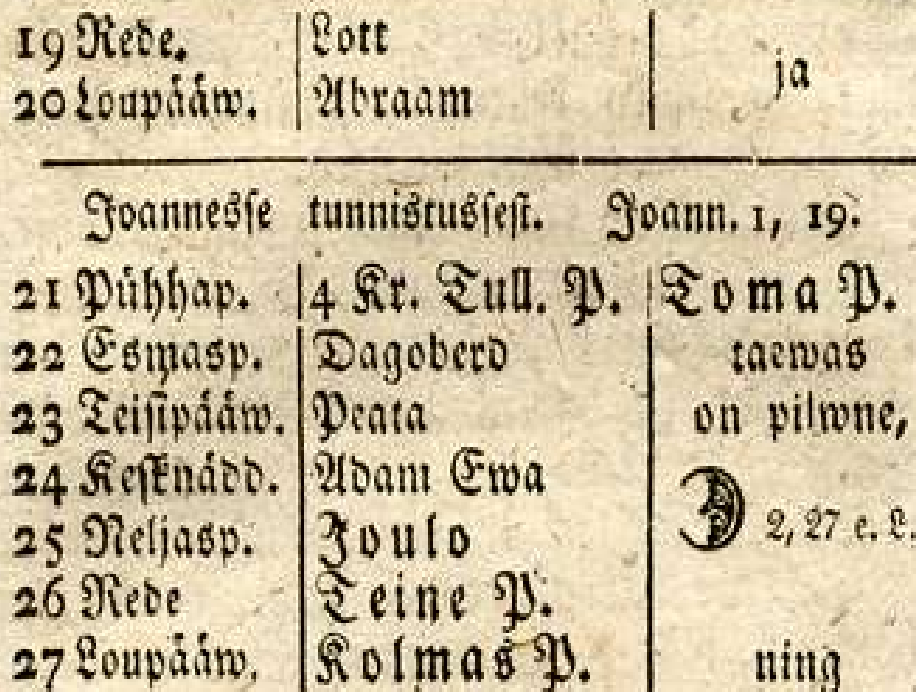 19 Rede. Lott
ja
20 Loupääw. Abraam
Joannesse tunnistussest. Joann. 1, 19.
21 Pühhap. 4 Kr. Tull. P. Toma P.
22 Esmasp. Dagoberd taewas
23 Teisipääw. Peata on pilwne,
24 Keſknädd. Adam Ewa
25 Neljasp. Joulo 2, 27 e. L.
26 Rede Teine P.
27 Loupääw. Kolmas P. ning